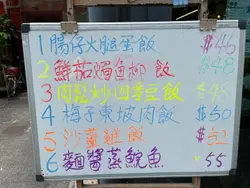 1 腸仔火腿蛋飯 $46
2 鮮茄焗魚柳飯 $48
3 肉崧炒四季豆飯 $45
4 梅子東坡肉飯 $50
5 沙薑雞飯 $52
6 麵醬蒸鯇魚 $55